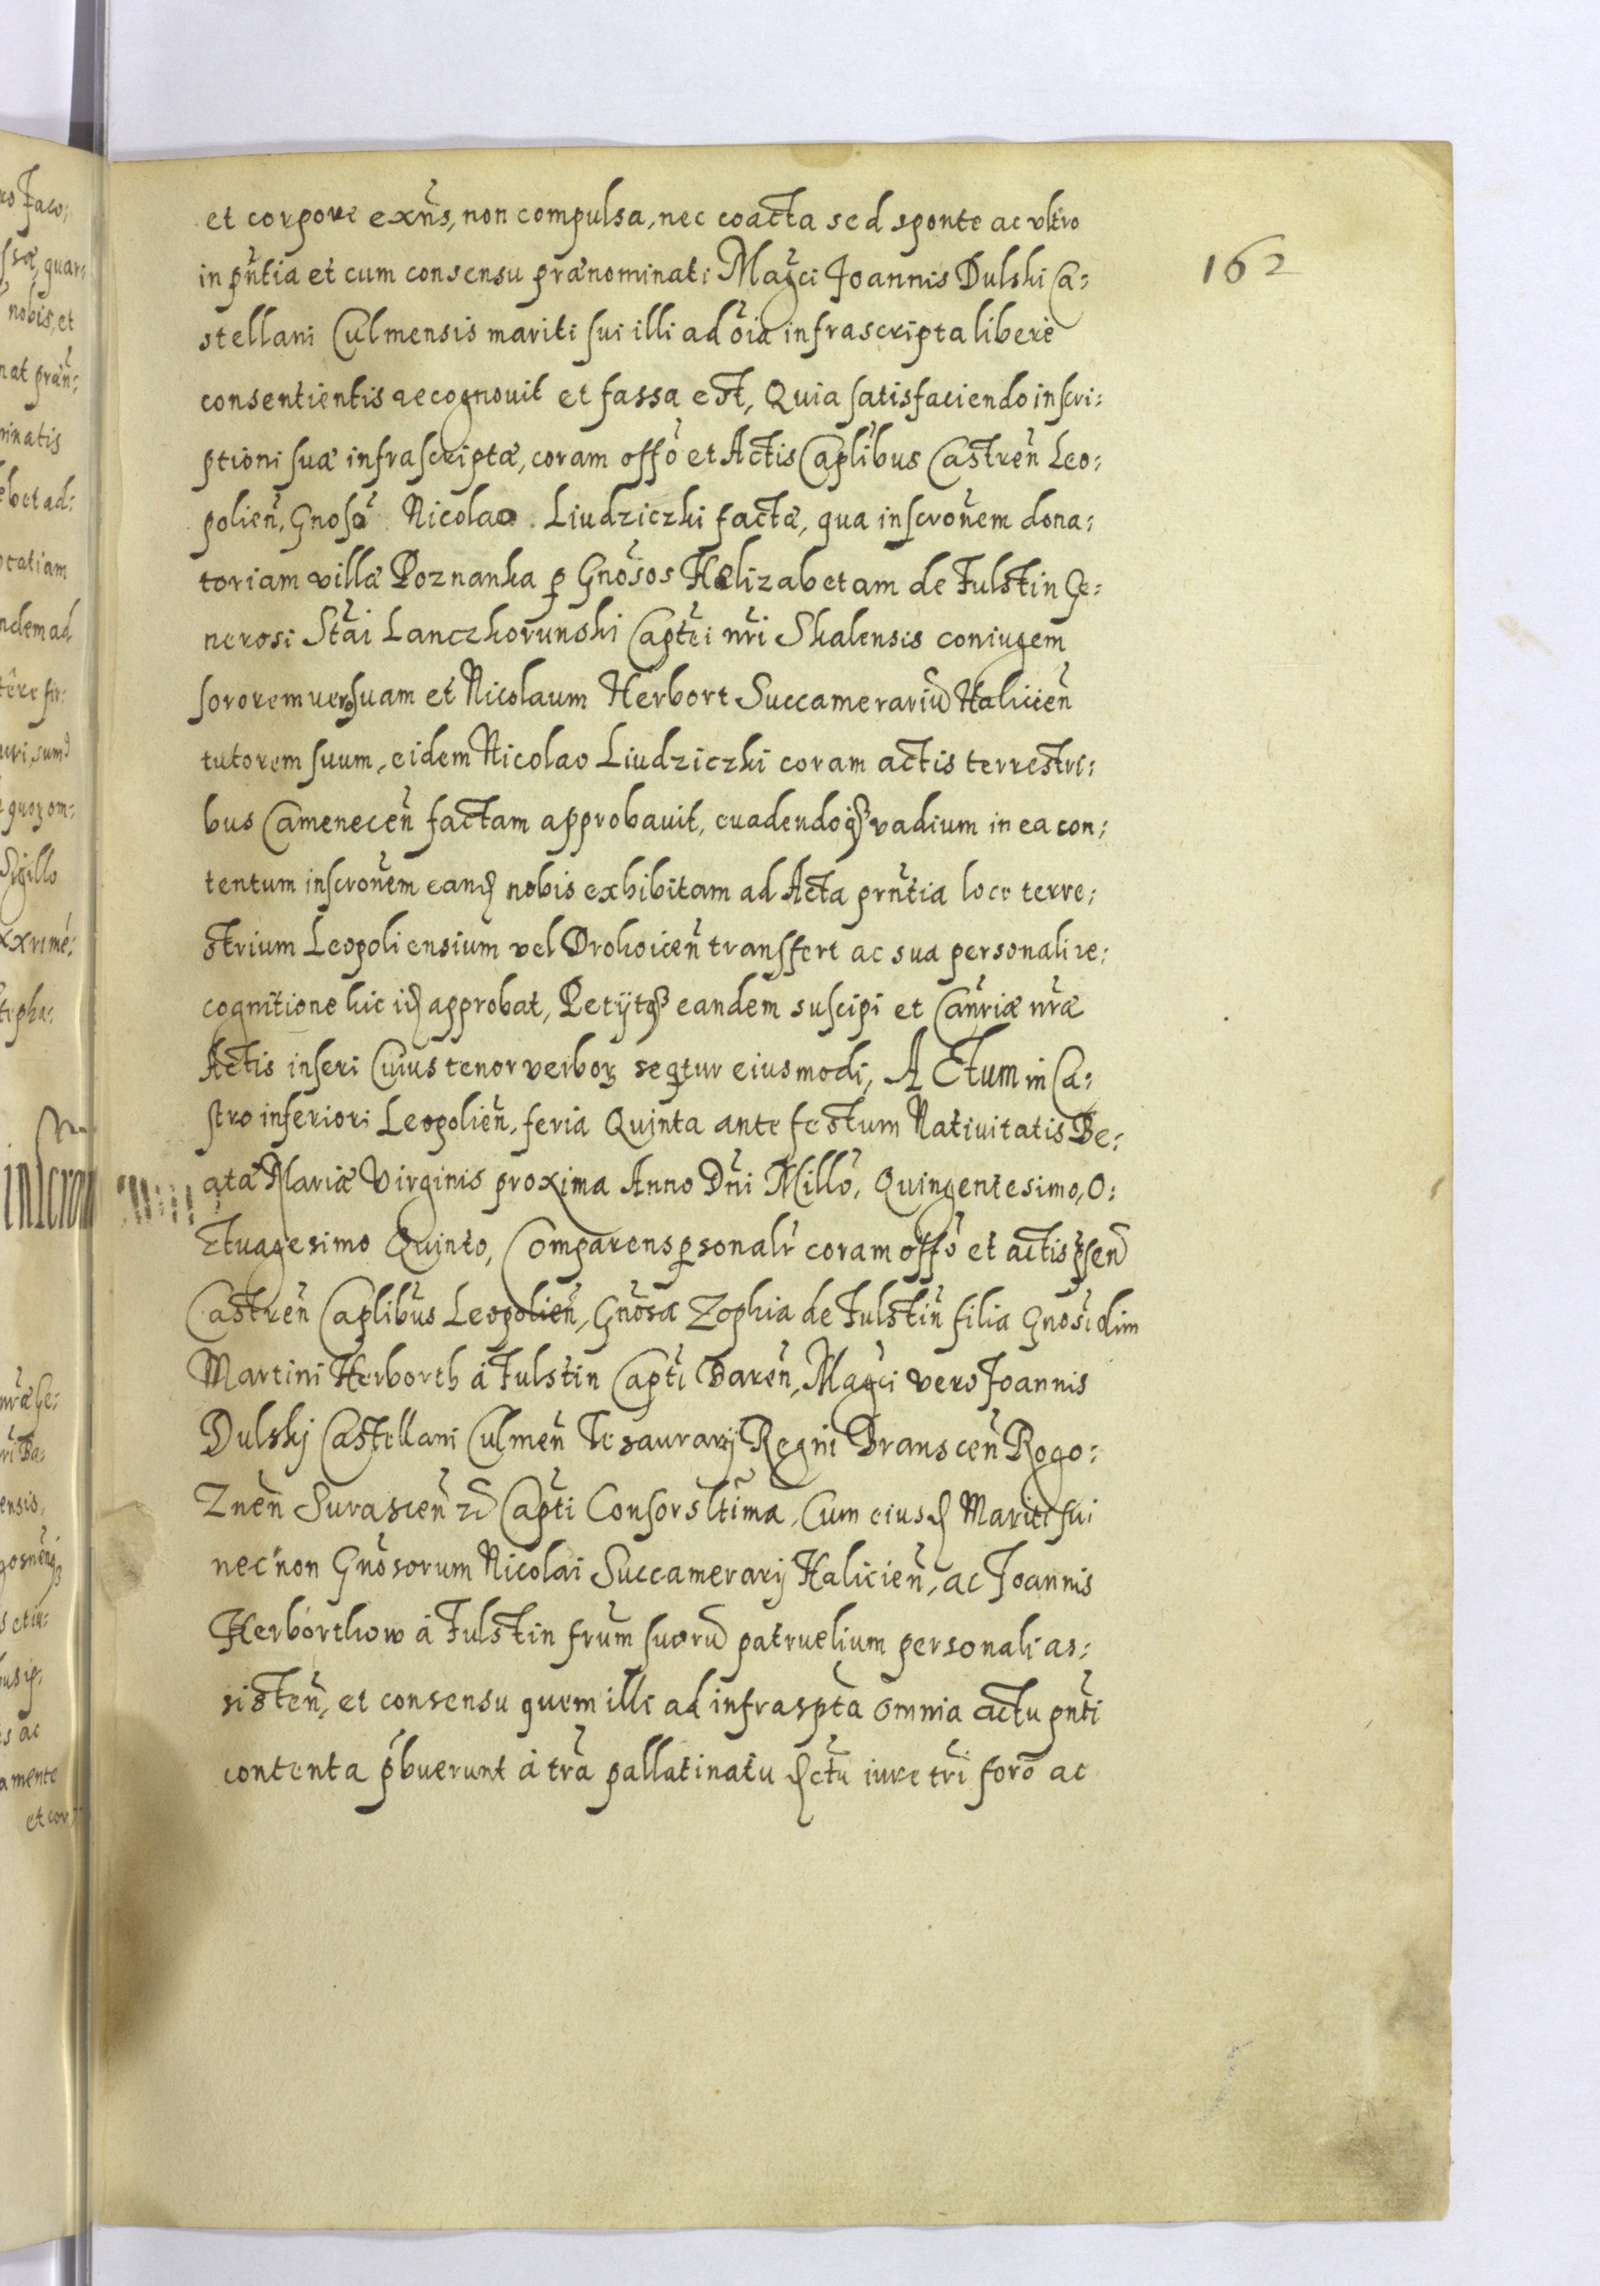 162
et corpore exñs, non compulsa, nec coacta sed sponte ac vltro
in pñtia et cum consensu prænominati Magci Joannis Dulski Ca:
stellani Culmensis mariti sui illi ad oĩa infrascripta liberè
consentientis recognouit et fassa est, Quia satisfaciendo inscri:
ptioni suæ infrascriptæ, coram offõ et Actis Caplibus Castreñ Leo:
polieñ, Gnoso Nicolao Liudziczki factæ, qua inscroñem dona:
toriam villæ Poznanka p Gnosos Helizabetam de Fulstin Ge:
nerosi Stãi Lanczkorunski Captei nri Skalensis coniugem
sororem vero suam et Nicolaum Herbort Succamerariũ Halicieñ
tutorem suum, eidem Nicolao Liudziczki coram actis terrestri:
bus Cameneceñ factam approbauit, euadendoq3 vadium in ea con:
tentum inscroñem eand nobis exhibitam ad Acta prñtia loco terre:
strium Leopoliensium vel Drohoiceñ transfert ac sua personali re:
cognitione hic iid approbat, Petijtq3 eandem suscipi et Canriæ nræ
Actis inseri Cuius tenor verboꝝ seqtur eiusmodi, ACtum in Ca:
stro inferiori Leopolieñ, feria Quinta ante festum Natiuitatis Be:
atæ Mariæ Virginis proxima Anno Dñi Millõ, Quingentesimo, O:
Ctuagesimo Quinto, Comparens psonalr coram offõ et actis psen
Castreñ Caplibus Leopolieñ, Gnosa Zophia de Fulstin filia Gnosi olim
Martini Herborth à Fulstin Capti Bareñ, Magci vero Joannis
Dulskj Castellani Culmeñ Tesaurarij Regni Branscen̄ Rogo:
Zneñ Surascieñ Capti Consors ltima, Cum eiusd Mariti sui
nec non Gnosorum Nicolai Succamerarij Halicieñ, ac Joannis
Herborthow à Fulstin frum suorũ patruelium personali as:
sisteñ, et consensu quem illi ad infraspta omnia actu pñti
contenta pbuerunt à tra pallatinatu dctu iure tri foro ac